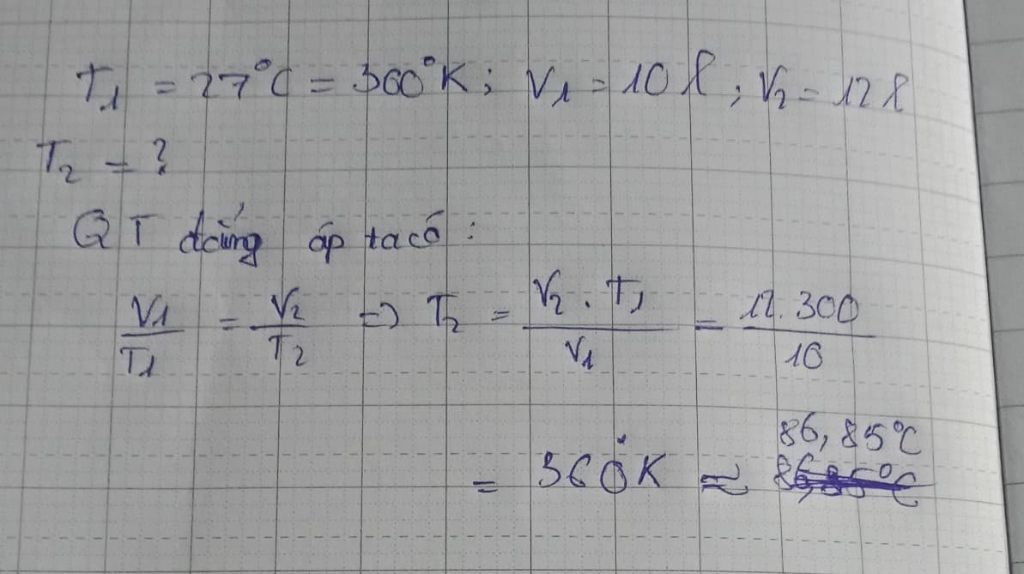 T₁ = 27°C = 300°K; V₁ = 10 l; V₂ = 12 l
T₂ = ?
QT đẳng áp ta có :
V₁/T₁ = V₂/T₂ => T₂ = V₂ . T₁/V₁ = 12.300/10
86,85°C
= 360°K ≈ 86,85°C